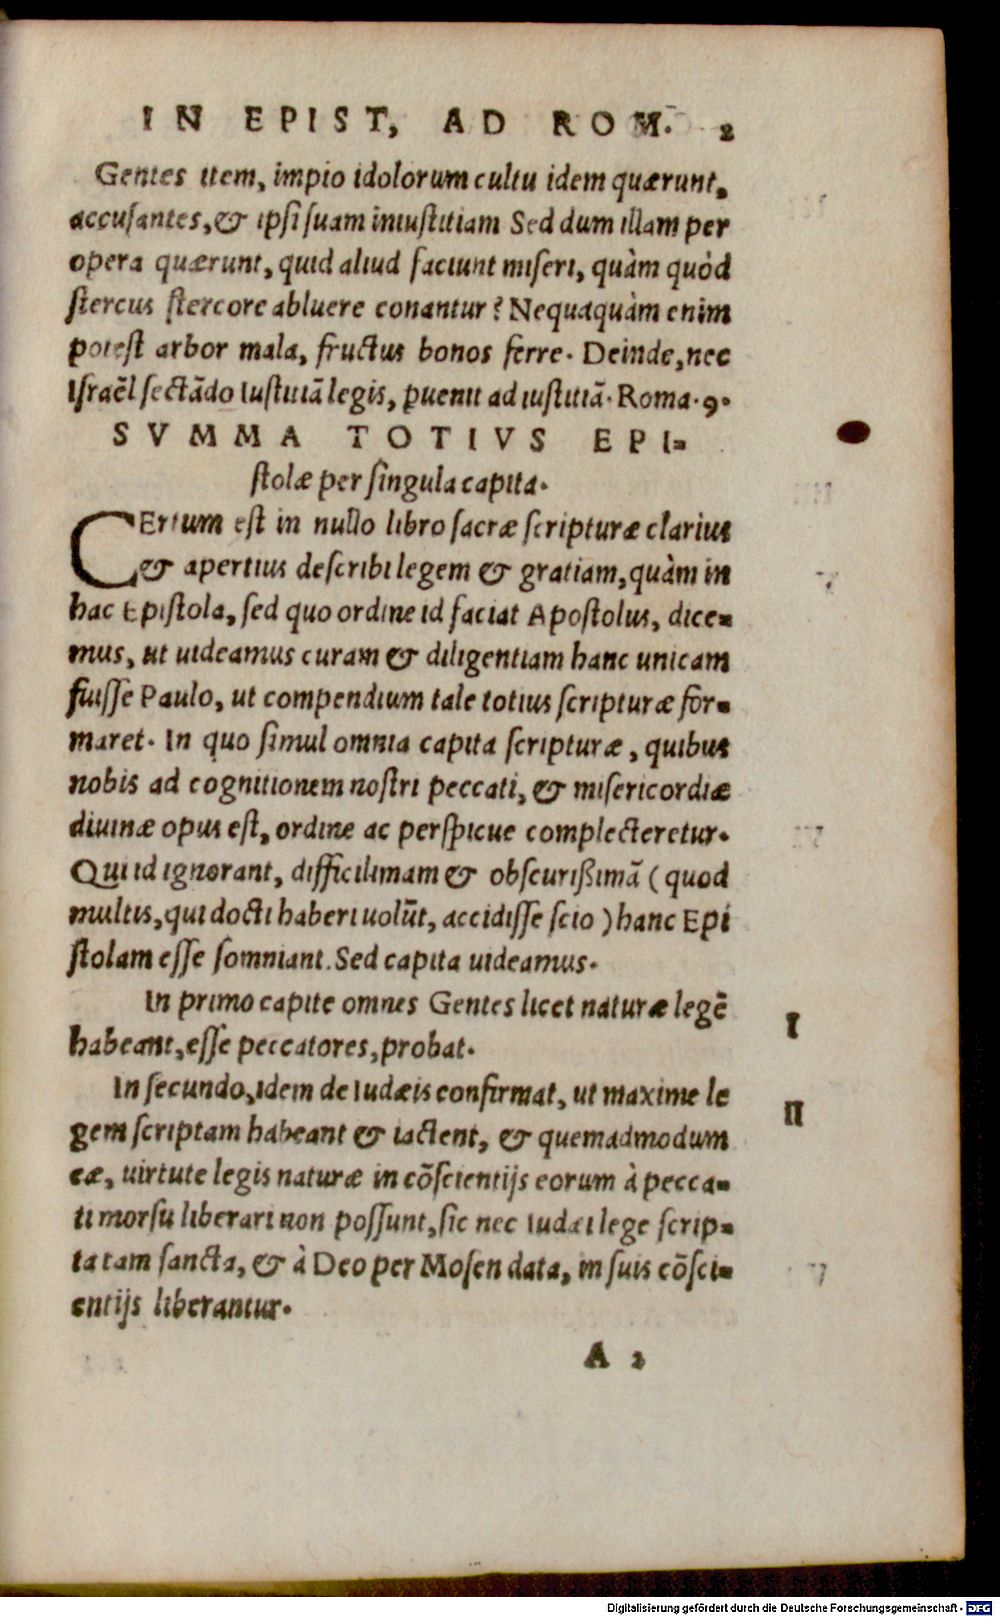 IN EPIST, AD ROM. 2
Gentes item, impio idolorum cultu idem quærunt,
accusantes, & ipsi suam iniustitiam Sed dum illam per
opera quærunt, quid aliud faciunt miseri, quàm quòd
stercus stercore abluere conantur? Nequaquàm enim
potest arbor mala, fructus bonos ferre. Deinde, nec
Israẽl sectãdo iustitiã legis, ꝑuenit ad iustitiã. Roma. 9.
SVMMA TOTIVS EPI-
stolæ per singula capita.
CErtum est in nullo libro sacræ scripturæ clarius
& apertius describi legem & gratiam, quàm in
hac Epistola, sed quo ordine id faciat Apostolus, dice-
mus, ut uideamus curam & diligentiam hanc unicam
fuisse Paulo, ut compendium tale totius scripturæ for-
maret. In quo simul omnia capita scripturæ, quibus
nobis ad cognitionem nostri peccati, & misericordiæ
diuinæ opus est, ordine ac perspicue complecteretur.
Qui id ignorant, difficilimam & obscurißimã (quod
multis, qui docti haberi uolũt, accidisse scio) hanc Epi
stolam esse somniant. Sed capita uideamus.
In primo capite omnes Gentes licet naturæ legẽ
habeant, esse peccatores, probat.
I
In secundo, idem de Iudæis confirmat, ut maxime le
II
gem scriptam habeant & iactent, & quemadmodum
eæ, uirtute legis naturæ in cõscientijs eorum à pecca-
ti morsu liberari non possunt, sic nec Iudæi lege scrip-
ta tam sancta, & à Deo per Mosen data, in suis cõsci-
entijs liberantur.
A 2
Digitalisierung gefördert durch die Deutsche Forschungsgemeinschaft - DFG